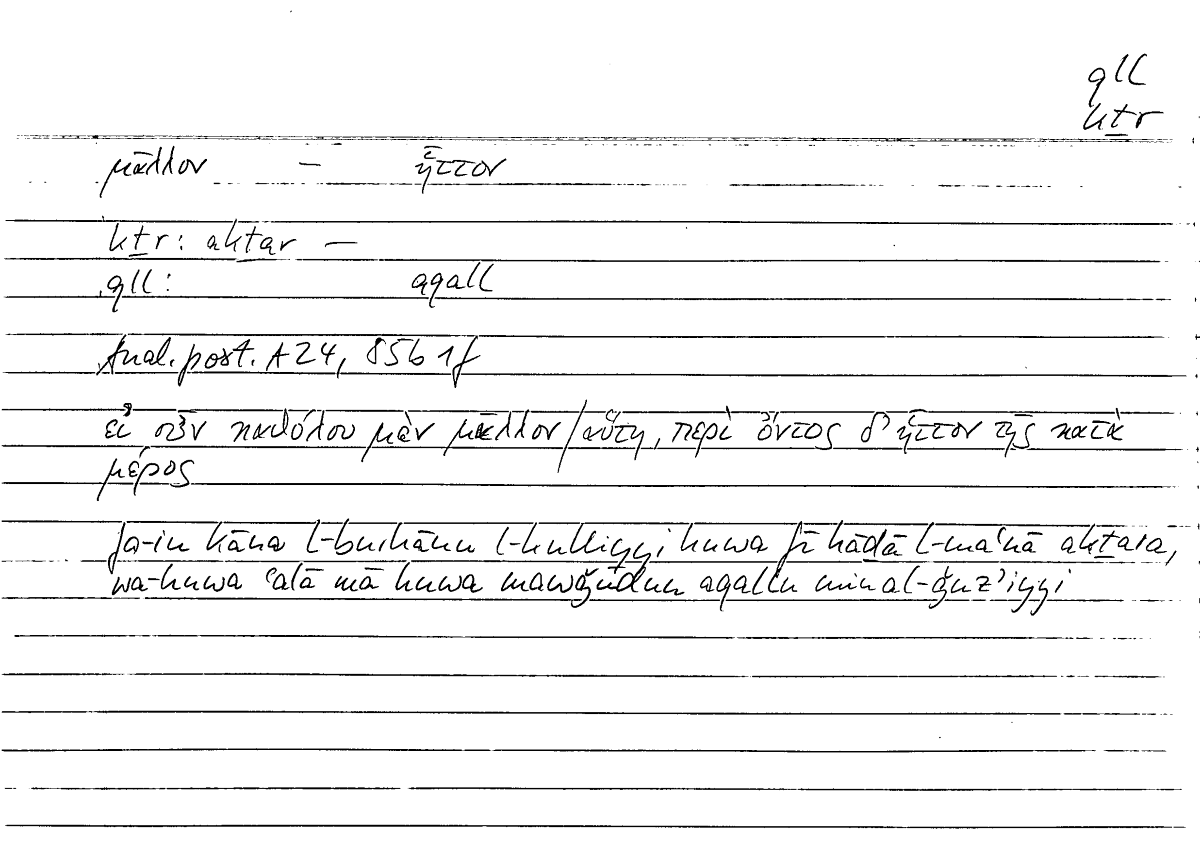 qll
kṯr
μᾶλλον — ἧττον
kṯr: akṯar —
qll: aqall
Anal. post. A 24, 85b 1f
εἰ οὖν καθόλου μὲν μᾶλλον / αὕτη, περὶ ὄντος δ' ἧττον τῆς κατὰ
μέρος
fa-in kāna l-burhānu l-kulliyyi huwa fī hāḏā l-maʿnā akṯara,
wa-huwa ʿalā mā huwa mawǧūdun aqallu mina l-ǧuzʾiyyi